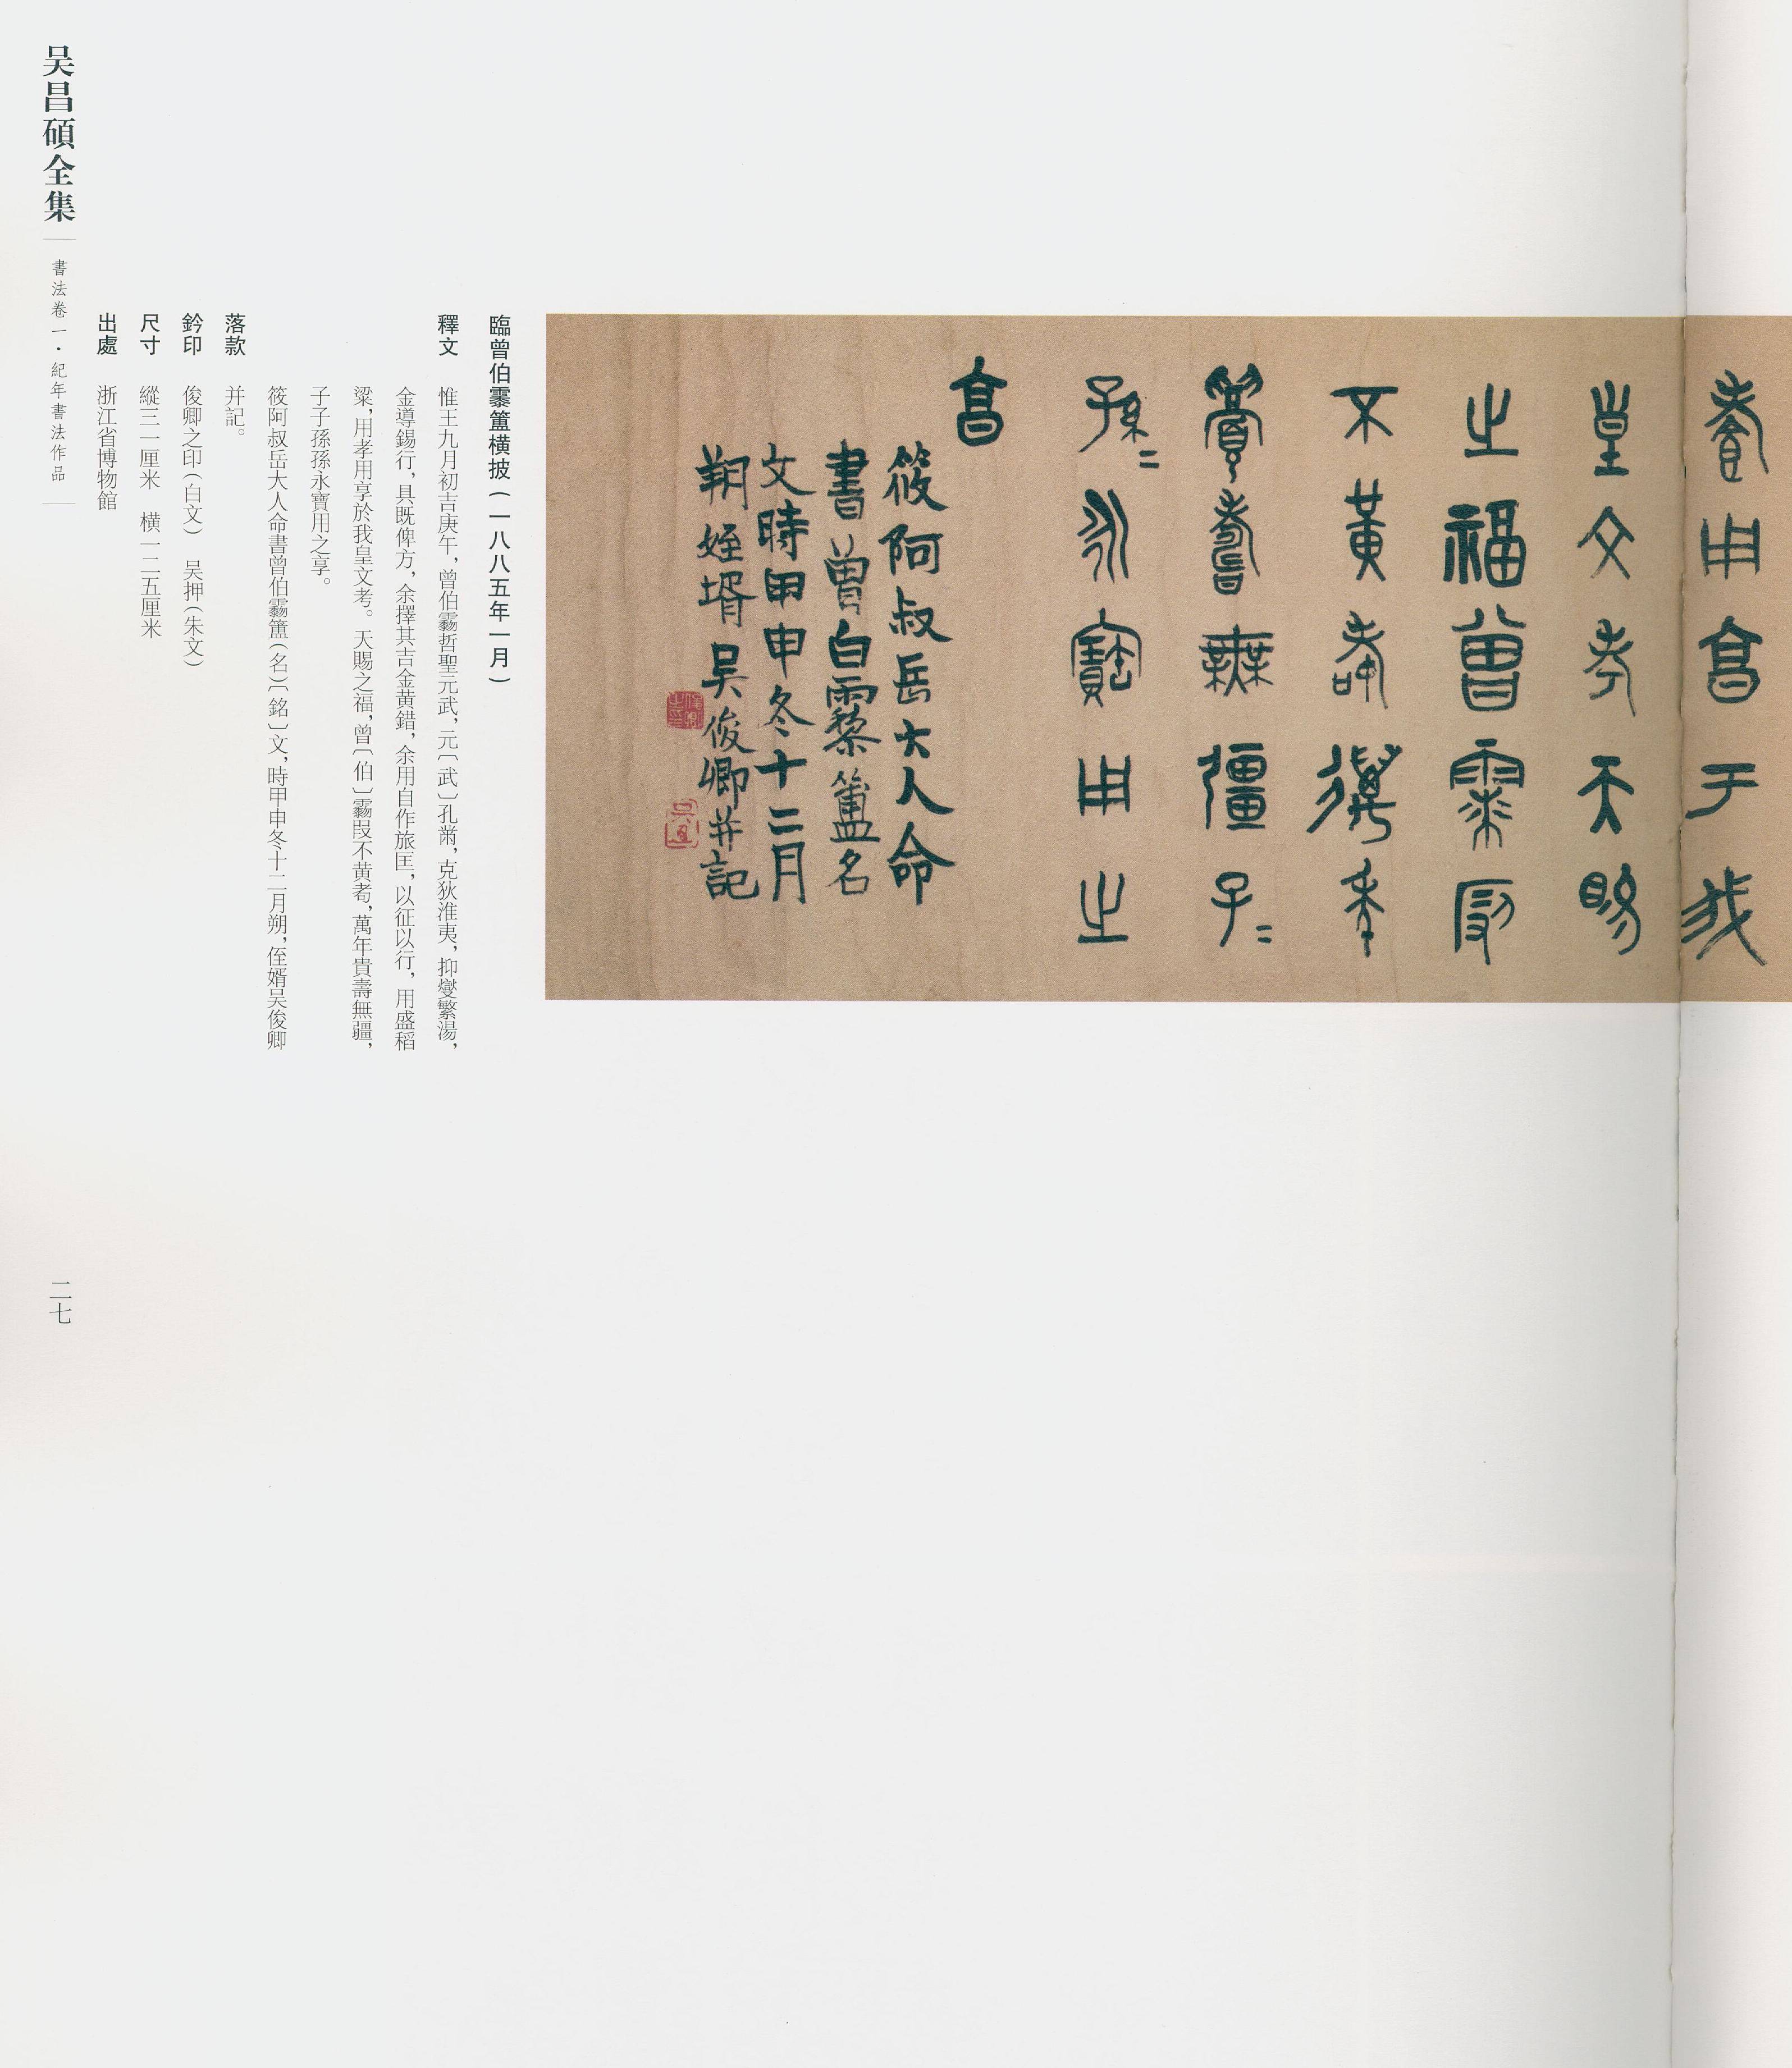 孝用亯于我
皇文考天賜
之福曾霥叚
不黃耇邁年
眉壽無疆子=
孫=永寶用之
亯
筱阿叔岳大人命
書曾白霥簠名
文時甲申冬十二月
朔姪壻吴俊卿并記
俊卿之印
臨曾伯霥簠橫披(一八八五年一月)
釋文 惟王九月初吉庚午,曾伯霥哲聖元武,元〔武〕孔黹,克狄淮夷,抑燮繁湯,
金導錫行,具既俾方,余擇其吉金黄錯,余用自作旅匡,以征以行,用盛稻
粱,用孝用享於我皇文考。天賜之福,曾〔伯〕霥叚不黄耇,萬年貴壽無疆,
子子孫孫永寶用之享。
筱阿叔岳大人命書曾伯霥簠(名)〔銘〕文,時甲申冬十二月朔,侄婿吴俊卿
落款 并記。
鈐印 俊卿之印(白文) 吴押(朱文)
尺寸 縱三一厘米 橫一二五厘米
出處 浙江省博物館
吴昌碩全集
書法卷一·紀年書法作品
二七